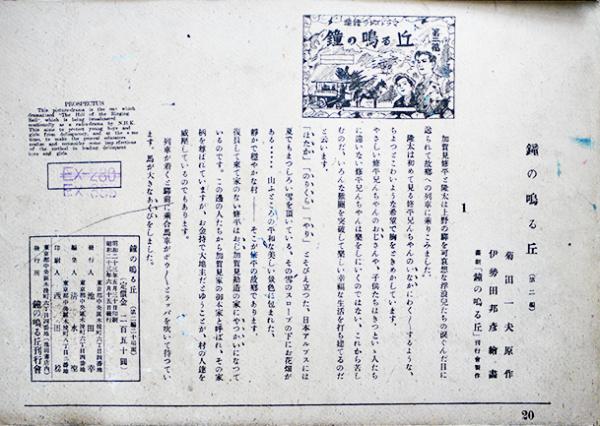 連続ラジオドラマ
第二篇
鐘の鳴る丘
鐘の鳴る丘（第二編）
菊田一夫原作
伊勢田邦彦繪畫
畫劇『鐘の鳴る丘』刊行會製作
1
加賀見修平と隆太は上野の驛を可哀想な浮浪兒たちの淚ぐんだ目に
送られて故鄕への列車に乘りこみました。
隆太は初めて見る修平兄んちやんのいなかにわく／＼するような、
ちよつとこわいような希望で胸をときめかしています。
やさしい修平兄んちやんのおじさんや、子供たちはきつとえゝ人たち
に違いない修平兄んちやんは樂をしにいくのではない、これから苦し
むのだ、いろんな難關を突破して樂しい幸福な生活を打ち建てるのだ
と云います。
「ほたか」「のりくら」「やり」とそびえ立つた、日本アルプスには
夏でもまつしろい雪を頂いている、その雪のスロープの下にお花畑が
ある……山ふところの平和な美しい景色に包まれた、
靜かで穩やかな村――そこが修平の故鄕であります。
復員して來て家のない修平はおじ加賀見勘造の家にやつかいになつて
いるのです。この邊の人たちから加賀見家の御本家と呼ばれ、その家
柄を尊ばれていますが、お金持で大地主だとゆうことが、村の人達を
威壓しているのでもあります。
列車が着くと驛前に乘合馬車がポゥーとラッパを吹いて待つてい
ます。馬が大きなあくびをしました。
PROSPECTUS
This picture-drama is the one which
dramatized "The Hill of the Ringing
Bell" which is being broadcasted
nationally as a radio-drama by N.H.K.
This aims to protect young boys and
girls from delinquency, and at the same
time, to make the general educators
realize and reconsider some imperfections
of the method in leading delinquent
boys and girls.
EX-280
鐘の鳴る丘（第二編二十場面）
（定價金二百五十圓）
發行人 池田
編集人 淸水
印刷人 淺田
發行所 鐘の鳴る丘刊行會
20